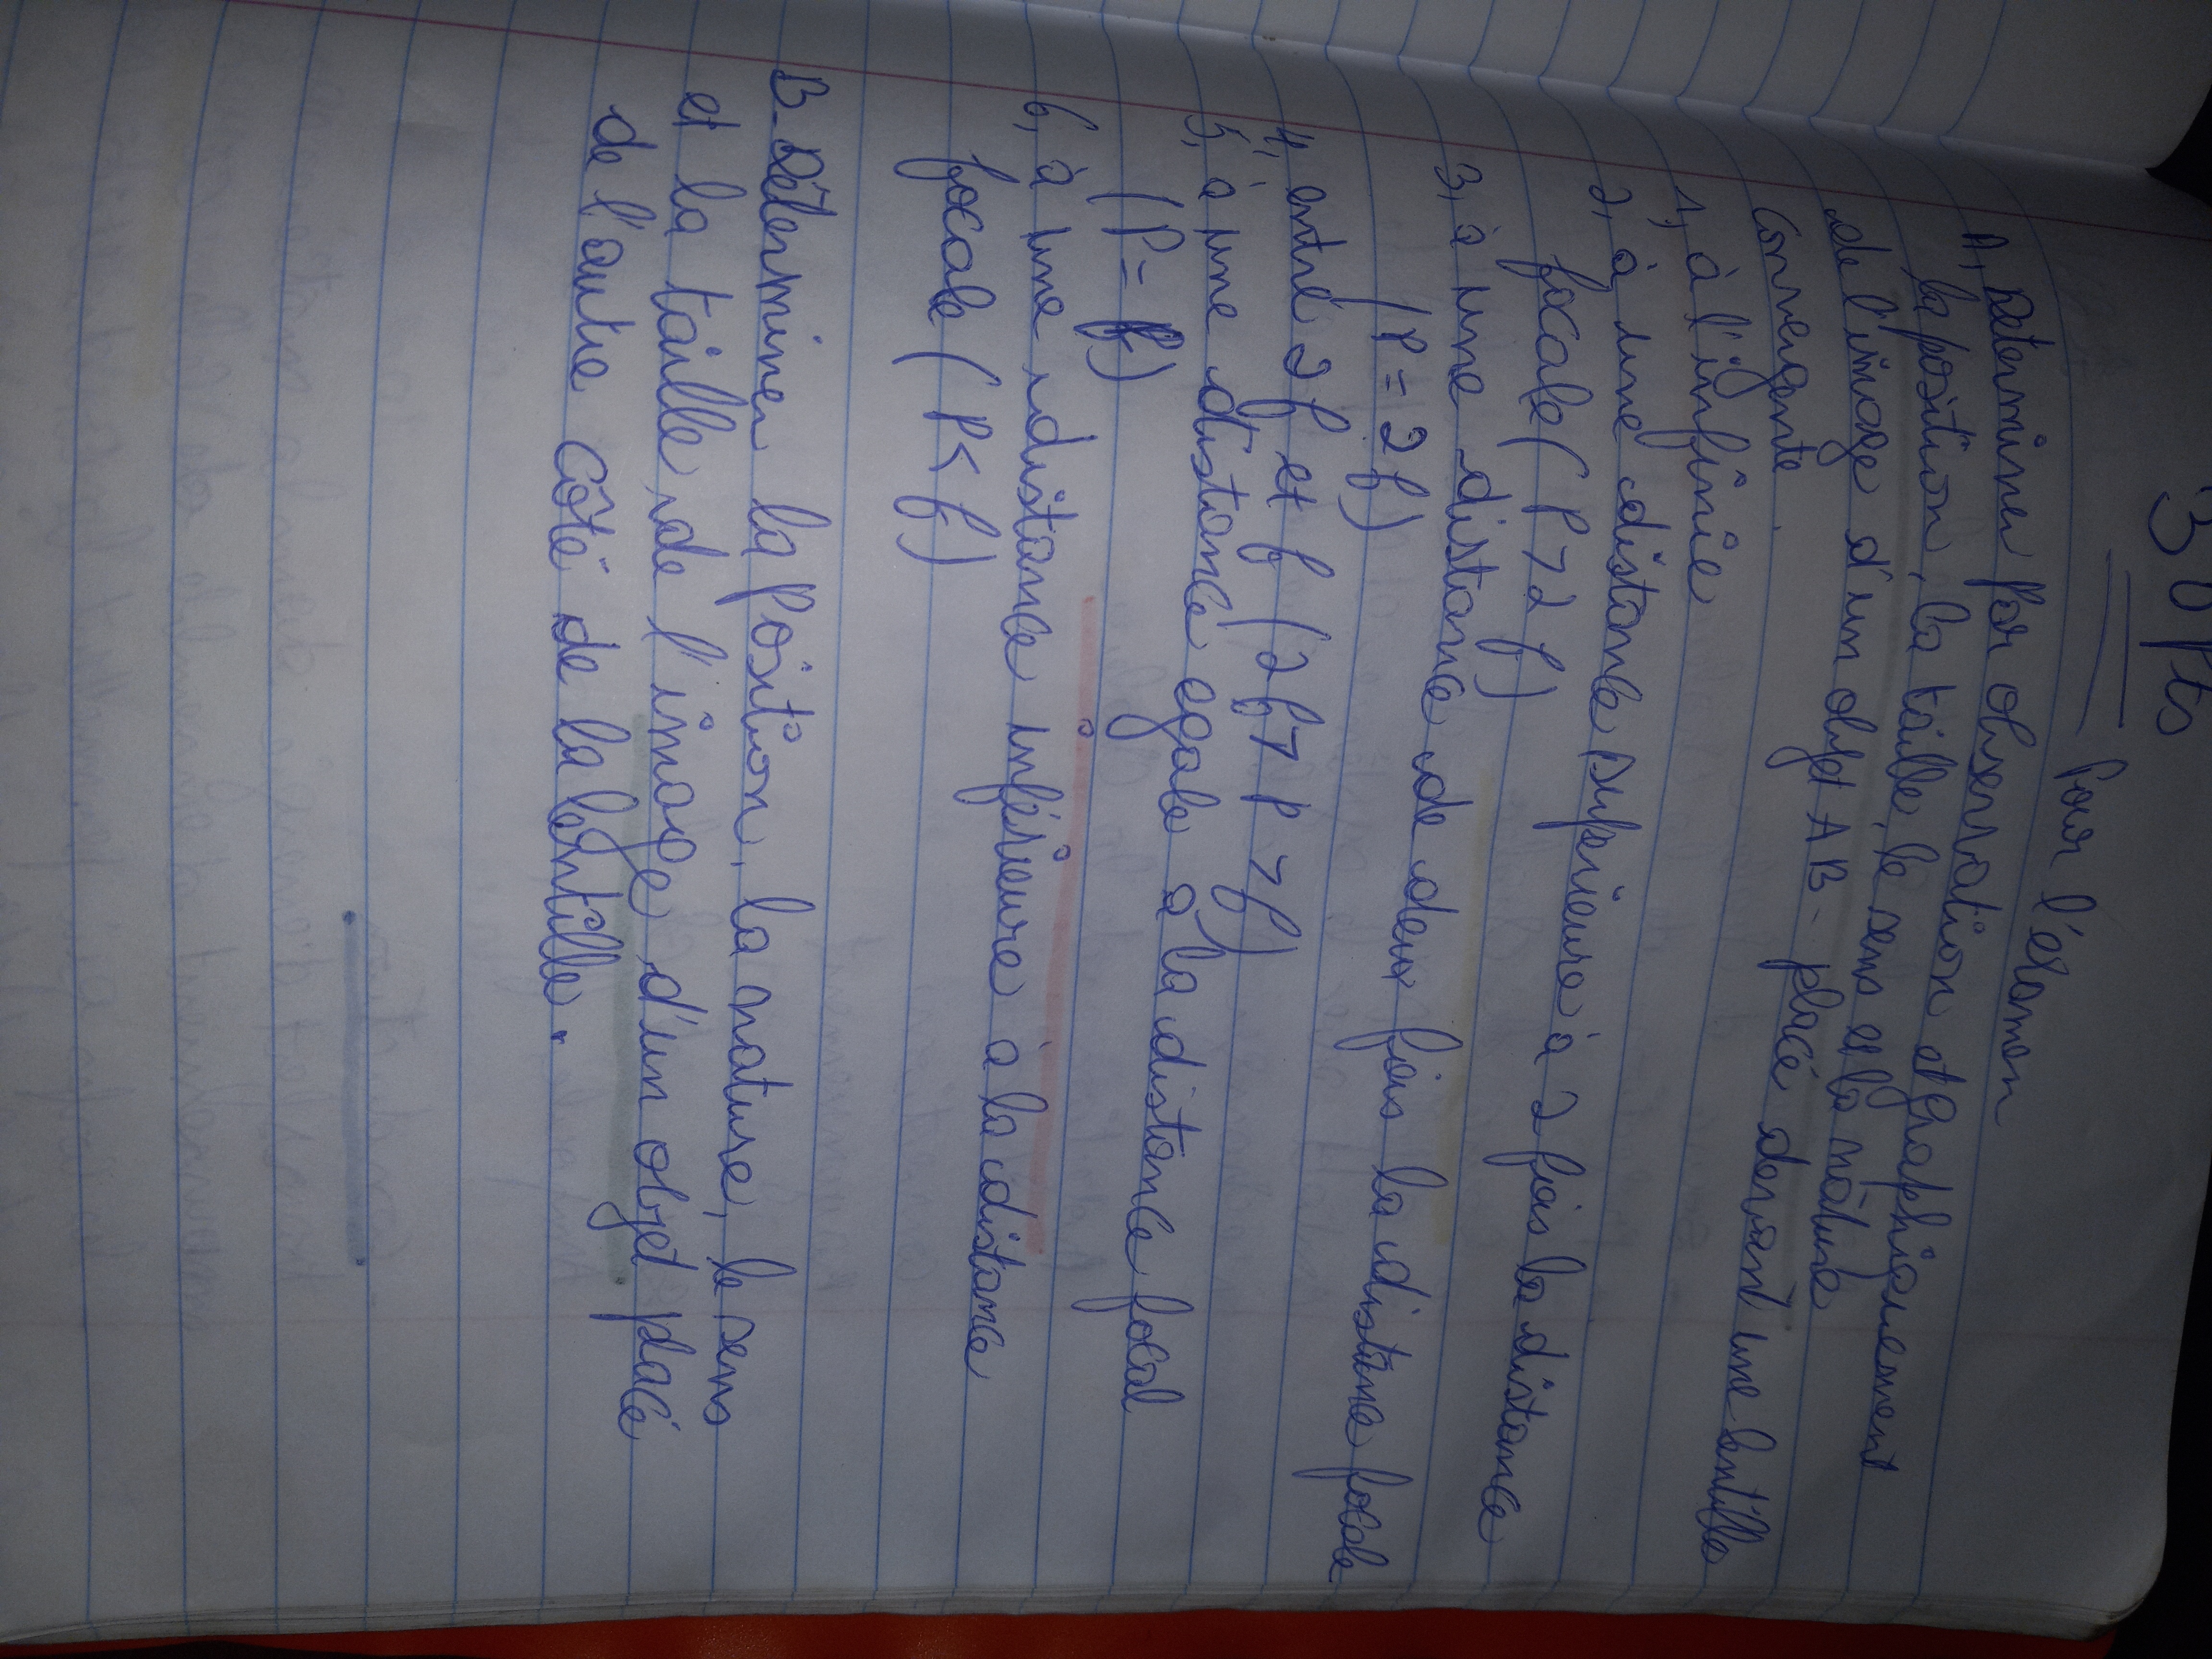 30 pts
Pour l'examen
A, Determiner par observation et graphiquement
la position, la taille, le sens et la nature
de l'image d'un objet AB - placé devant une lentille
convergente.
1, à l'infinie
2, à une distance supérieure à 2 fois la distance
focale (P > 2f)
3, à une distance de deux fois la distance focale
(P = 2f)
4, entre 2f et f (2f > P > f)
5, à une distance egale à la distance focal
(P = f)
6, à une distance inférieure à la distance
focale (P < f)
B - Déterminer la position, la nature, le sens
et la taille de l'image d'un objet placé
de l'autre côté de la lentille.